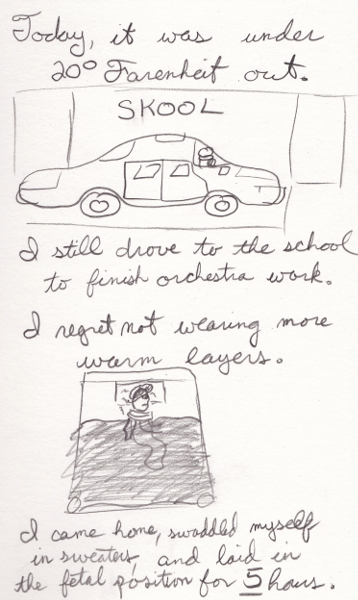 Today, it was under
20° Farenheit out.
SKOOL
I still drove to the school
to finish orchestra work.
I regret not wearing more
warm layers.
I came home, swaddled myself
in sweaters, and laid in
the fetal position for 5 hours.